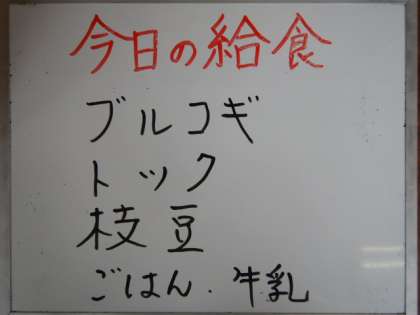 今日の給食
ブルコギ
トック
枝豆
ごはん.牛乳